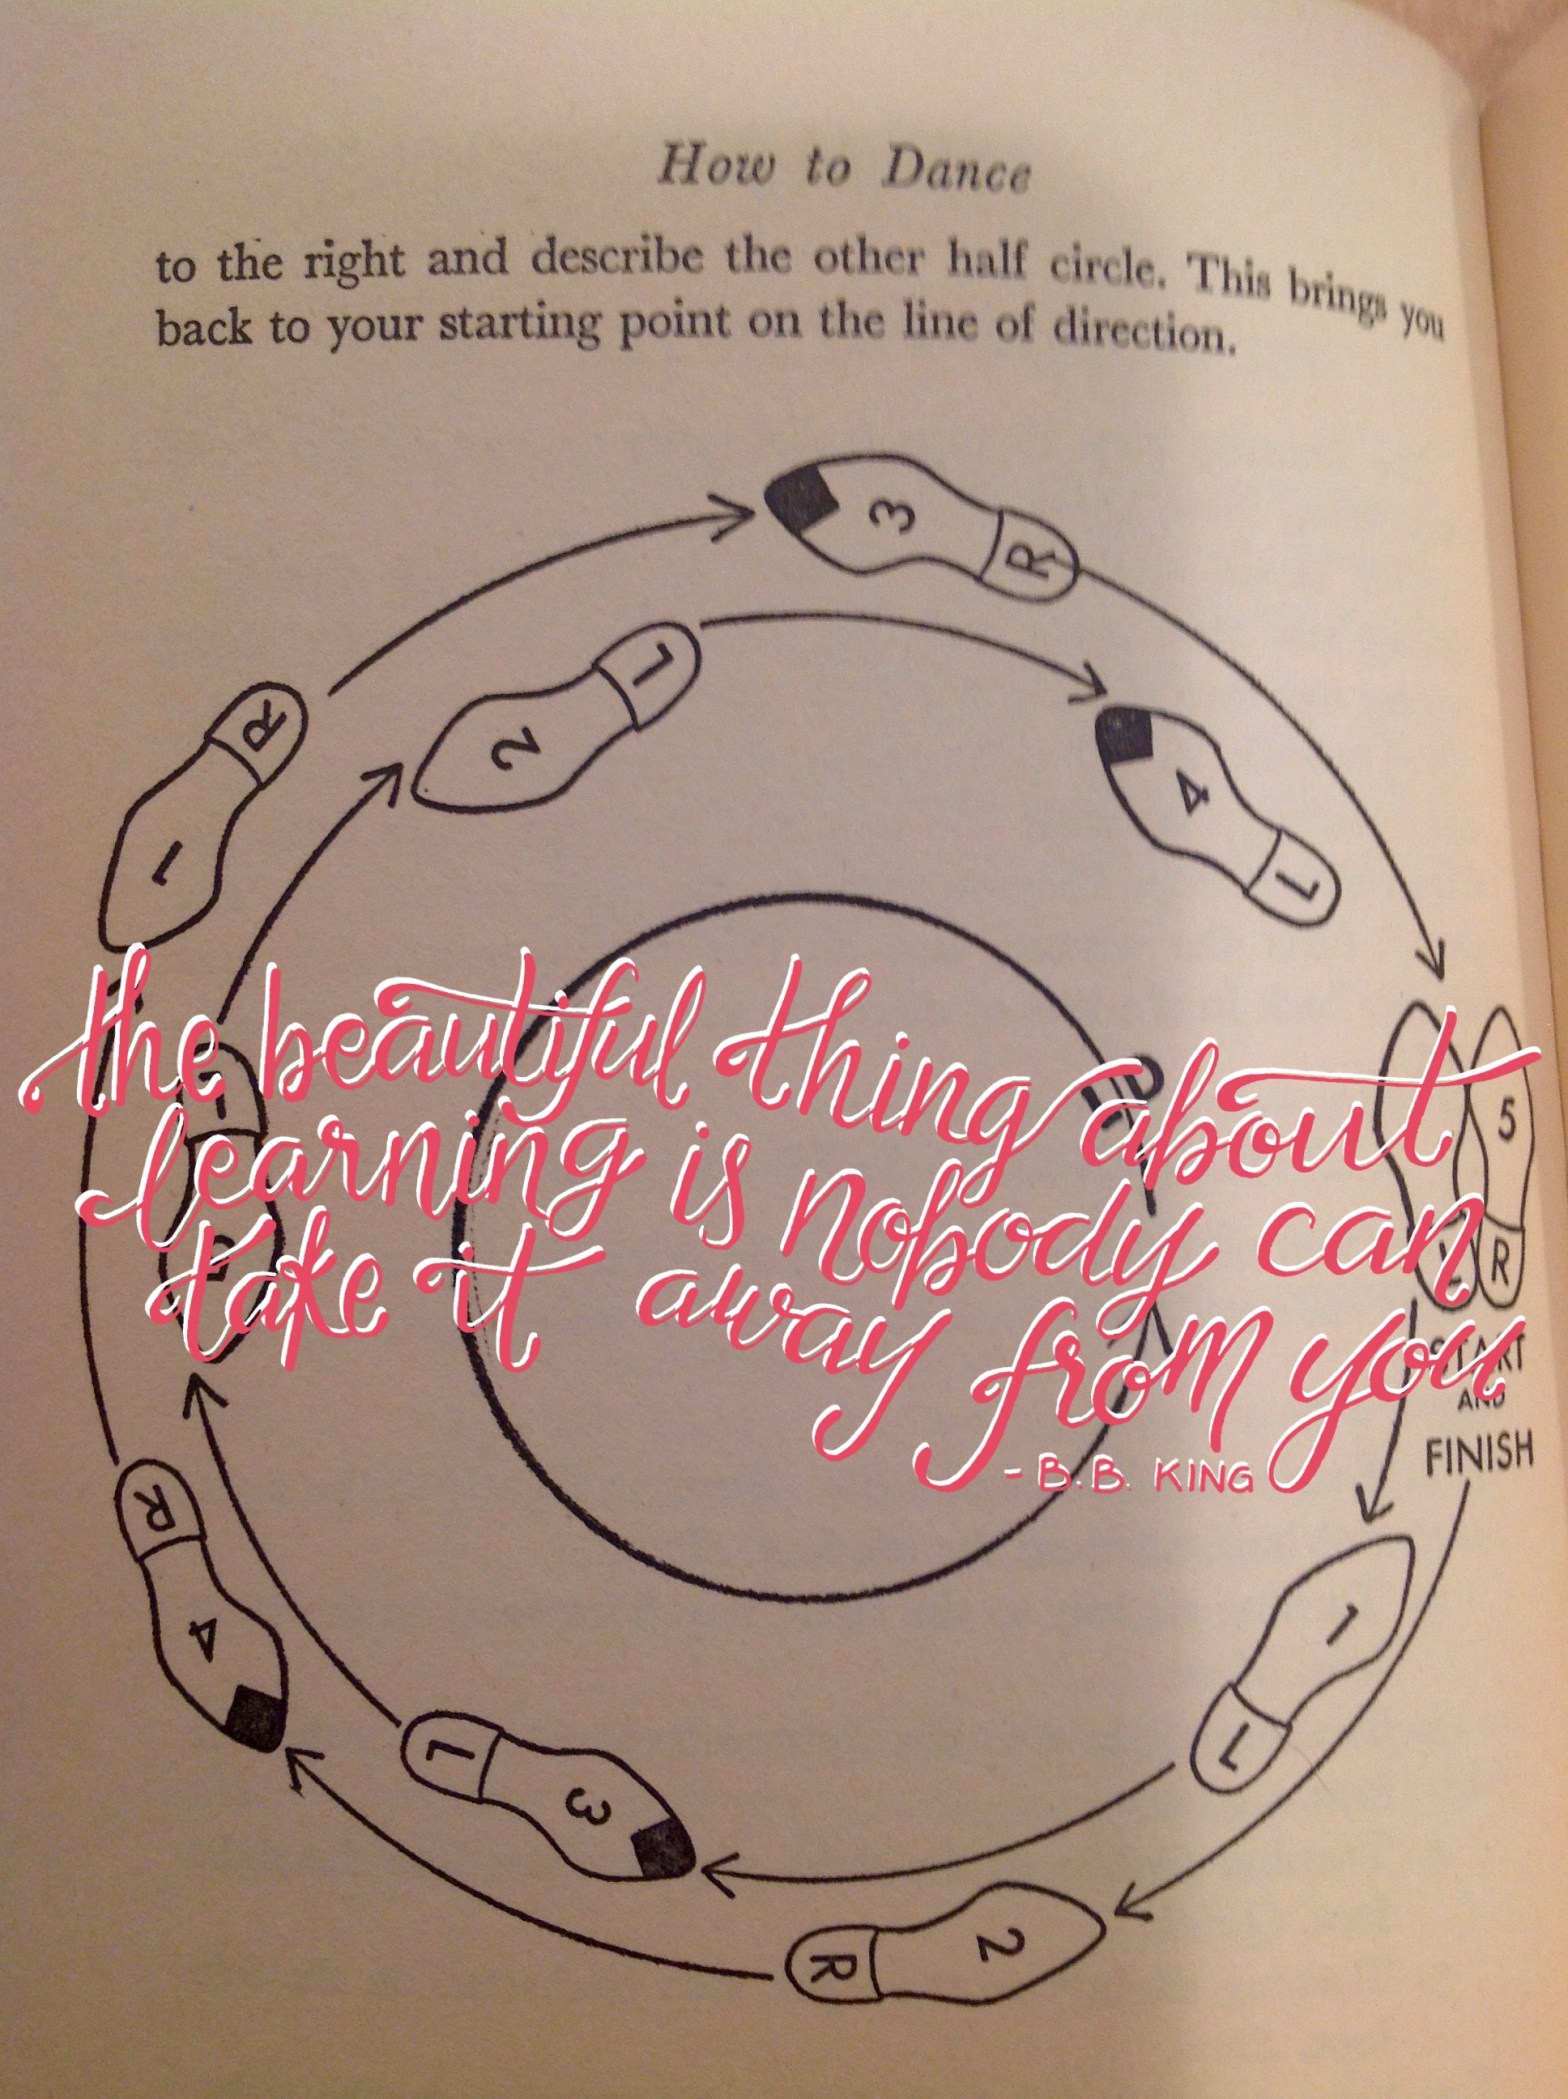 How to Dance
to the right and describe the other half circle. This brings you
back to your starting point on the line of direction.
3
R
L
2
R
1
4
L
the beautiful thing about
learning is nobody can
take it away from you
- B.B. KING
5
L
R
START
AND
FINISH
R
4
1
L
L
3
2
R